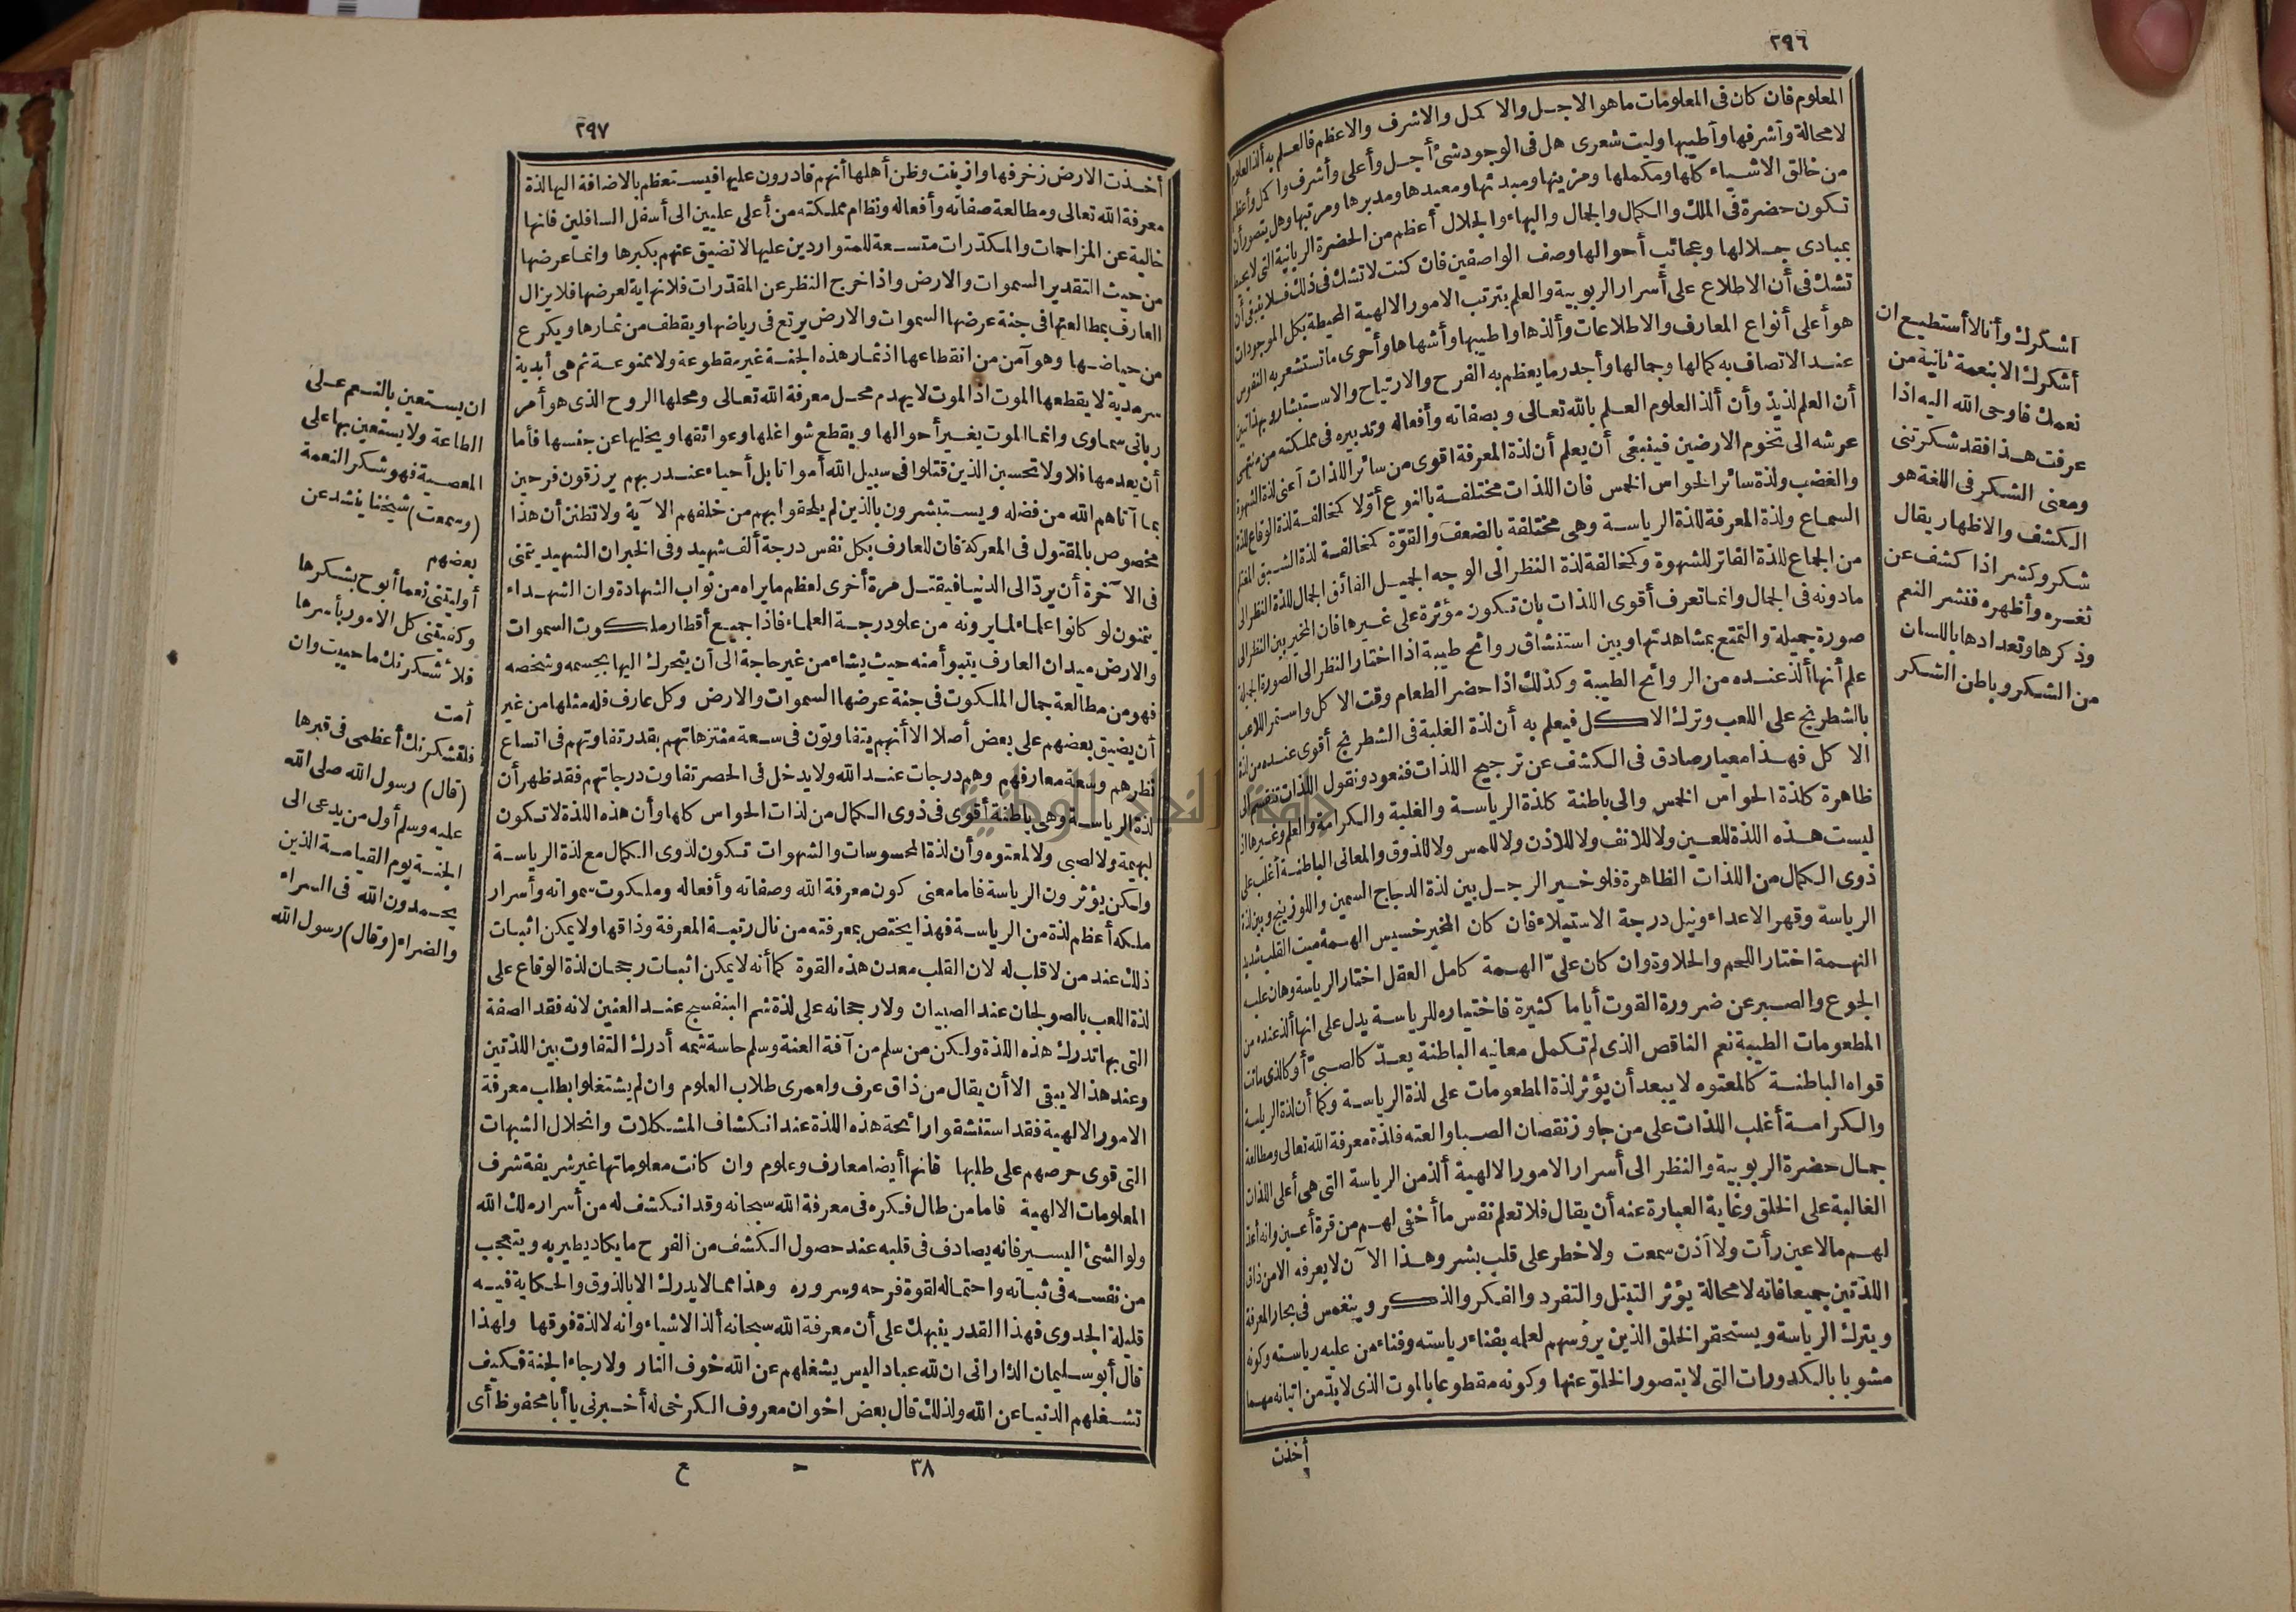 ٢٩٦
المعلوم فان كان فى المعلومات ماهو الاجل والا كمل والاشرف والاعظم فالعلم به ألذ العلوم
لامحالة وأشرفها وأطيبها وليت شعرى هل فى الوجود شئ أجل وأعلى وأشرف وا كمل وأعظم
من خالق الاشياء كلها ومكملها ومزينها ومبدئها ومعيدها ومدبرها ومرتبها وهل يتصور أن
تكون حضرة فى الملك والكمال والجمال والبهاء والجلال أعظم من الحضرة الربانية التى لايحيط
بمبادى جلالها وعجائب أحوالها وصف الواصفين فان كنت لاتشك فى ذلك فلا ينبغى أن
تشك فى أن الاطلاع على أسرار الربوبية والعلم بترتب الامور الالهية المحيطة بكل الموجودات
هو أعلى أنواع المعارف والاطلاعات وألذها واطيبها وأشهاها وأحرى ماتستشعر به النفوس
عند الاتصاف به كمالها وجمالها وأجدر مايعظم به الفرح والارتياح والاستبشار وبهذا تبين
أن العلم لذيذ وأن ألذ العلوم العلم بالله تعالى وبصفاته وأفعاله وتدبيره فى مملكته من منتهى
عرشه الى تخوم الارضين فينبغى أن يعلم أن لذة المعرفة اقوى من سائر اللذات أعنى لذة الشهوة
والغضب ولذة سائر الحواس الخمس فان اللذات مختلفة بالنوع أولا كمخالفة لذة الوقاع للذة
السماع ولذة المعرفة للذة الرياسة وهى مختلفة بالضعف والقوة كمخالفة لذة الشبق المغتلم
من الجماع للذة الفاتر للشهوة وكمخالفة لذة النظر الى الوجه الجميل الفائق الجمال للذة النظر الى
مادونه فى الجمال وانما تعرف أقوى اللذات بان تكون مؤثرة على غيرها فان المخير بين النظر الى
صورة جميلة والتمتع بمشاهدتها وبين استنشاق روائح طيبة اذا اختار النظر الى الصورة الجميلة
علم أنها ألذ عنده من الروائح الطيبة وكذلك اذا حضر الطعام وقت الا كل واستمر اللاعب
بالشطرنج على اللعب وترك الاكل فيعلم به أن لذة الغلبة فى الشطرنج أقوى عنده من لذة
الا كل فهذا معيار صادق فى الكشف عن ترجيح اللذات فنعود ونقول اللذات تنقسم الى
ظاهرة كلذة الحواس الخمس والى باطنة كلذة الرياسة والغلبة والكرامة والعلم وغيرها اذ
ليست هذه اللذة للعين ولا للانف ولا للاذن ولا للمس ولا للذوق والمعانى الباطنة أغلب على
ذوى الكمال من اللذات الظاهرة فلو خير الرجل بين لذة الدجاج السمين واللوزينج وبين لذة
الرياسة وقهر الاعداء ونيل درجة الاستيلاء فان كان المخير خسيس الهمة ميت القلب شديد
النهمة اختار اللحم والحلاوة وان كان علىّ الهمة كامل العقل اختار الرياسة وهان عليه
الجوع والصبر عن ضرورة القوت أياما كثيرة فاختياره للرياسة يدل على انها ألذ عنده من
المطعومات الطيبة نعم الناقص الذى لم تكمل معانيه الباطنة بعدّ كالصبىّ أو كالذى ماتت
قواه الباطنة كالمعتوه لا يبعد أن يؤثر لذة المطعومات على لذة الرياسة وكما أن لذة الرياسة
والكرامة أغلب اللذات على من جاوز نقصان الصبا والعته فلذة معرفة الله تعالى ومطالعة
جمال حضرة الربوبية والنظر الى أسرار الامور الالهية ألذ من الرياسة التى هى أعلى اللذات
الغالبة على الخلق وغاية العبارة عنه أن يقال فلا تعلم نفس ما أخفى لهم من قرة أعين وانه أعد
لهم مالا عين رأت ولا أذن سمعت ولا خطر على قلب بشر وهذا الآن لايعرفه الامن ذاق
اللذتين جميعا فانه لا محالة يؤثر التبتل والتفرد والفكر والذكر وينغمس فى بحار المعرفة
ويترك الرياسة ويستحقر الخلق الذين يرؤسهم لعلمه بفناء رياسته وفناء من عليه رياسته وكونه
مشوبا بالكدورات التى لايتصور الخلو عنها وكونه مقطوعا بالموت الذى لابدّ من اتيانه مهما
أخذت
اشكرك وأنا لا أستطيع ان
أشكرك الا بنعمة ثانية من
نعمك فاوحى الله اليه اذا
عرفت هذا فقد شكرتنى
ومعنى الشكر فى اللغة هو
الكشف والاظهار يقال
شكر وكشر اذا كشف عن
ثغره وأظهره فنشر النعم
وذكرها وتعدادها باللسان
من الشكر وباطن الشكر
٢٩٧
أخذت الارض زخرفها وازينت وظن أهلها أنهم قادرون عليها فيستعظم بالاضافة اليها لذة
معرفة الله تعالى ومطالعة صفاته وأفعاله ونظام مملكته من أعلى عليين الى أسفل السافلين فانها
خالية عن المزاحمات والمكدّرات متسعة للمتواردين عليها لاتضيق عنهم بكبرها وانما عرضها
من حيث التقدير السموات والارض واذا خرج النظر عن المقدّرات فلانهاية لعرضها فلايزال
العارف بمطالعتها فى جنة عرضها السموات والارض يرتع فى رياضها ويقطف من ثمارها ويكرع
من حياضها وهو آمن من انقطاعها اذ ثمار هذه الجنة غير مقطوعة ولا ممنوعة ثم هى أبدية
سرمدية لايقطعها الموت اذ الموت لايهدم محل معرفة الله تعالى ومحلها الروح الذى هو أمر
ربانى سماوى وانما الموت يغير أحوالها ويقطع شواغلها وعوائقها ويخليها عن حبسها فأما
أن يعدمها فلا ولا تحسبن الذين قتلوا فى سبيل الله أمواتا بل أحياء عند ربهم يرزقون فرحين
بما آتاهم الله من فضله ويستبشرون بالذين لم يلحقوا بهم من خلفهم الآية ولا تظنن أن هذا
مخصوص بالمقتول فى المعركة فان للعارف بكل نفس درجة ألف شهيد وفى الخبر ان الشهيد يتمنى
فى الآخرة أن يردّ الى الدنيا فيقتل مرة أخرى لعظم مايراه من ثواب الشهادة وان الشهداء
يتمنون لو كانوا علماء لما يرونه من علو درجة العلماء فاذا جميع أقطار ملكوت السموات
والارض ميدان العارف يتبوأ منه حيث يشاء من غير حاجة الى أن يتحرك اليها بجسمه وشخصه
فهو من مطالعة جمال الملكوت فى جنة عرضها السموات والارض وكل عارف فله مثلها من غير
أن يضيق بعضهم على بعض أصلا الا أنهم يتفاوتون فى سعة منتزهاتهم بقدر تفاوتهم فى اتساع
نظرهم وسعة معارفهم وهم درجات عند الله ولايدخل فى الحصر تفاوت درجاتهم فقد ظهر أن
لذة الرياسة وهى باطنة أقوى فى ذوى الكمال من لذات الحواس كلها وأن هذه اللذة لاتكون
لبهيمة ولا لصبى ولا لمعتوه وأن لذة المحسوسات والشهوات تكون لذوى الكمال مع لذة الرياسة
ولكن يؤثرون الرياسة فاما معنى كون معرفة الله وصفاته وأفعاله وملكوت سمواته وأسرار
ملكه أعظم لذة من الرياسة فهذا يختص بمعرفته من نال رتبة المعرفة وذاقها ولا يمكن اثبات
ذلك عند من لاقلب له لان القلب معدن هذه القوة كما أنه لايمكن اثبات رجحان لذة الوقاع على
لذة اللعب بالصولجان عند الصبيان ولارجحانه على لذة شم البنفسج عند العنين لانه فقد الصفة
التى بها تدرك هذه اللذة ولكن من سلم من آفة العنة وسلم حاسة شمه أدرك التفاوت بين اللذتين
وعند هذا لايبقى الا أن يقال من ذاق عرف ولعمرى طلاب العلوم وان لم يشتغلوا بطلب معرفة
الامور الالهية فقد استنشقوا رائحة هذه اللذة عند انكشاف المشكلات وانحلال الشبهات
التى قوى حرصهم على طلبها فانها أيضا معارف وعلوم وان كانت معلوماتها غير شريفة شرف
المعلومات الالهية فاما من طال فكره فى معرفة الله سبحانه وقد انكشف له من أسرار ملك الله
ولو الشئ اليسير فانه يصادف فى قلبه عند حصول الكشف من الفرح مايكاد يطير به ويتعجب
من نفسه فى ثباته واحتماله لقوة فرحه وسروره وهذا مما لايدرك الابالذوق والحكاية فيه
قليلة الجدوى فهذا القدر ينبهك على أن معرفة الله سبحانه ألذ الاشياء وانه لالذة فوقها ولهذا
قال أبو سليمان الدارانى ان لله عبادا ليس يشغلهم عن الله خوف النار ولارجاء الجنة فكيف
تشغلهم الدنيا عن الله ولذلك قال بعض اخوان معروف الكرخى له أخبرنى ياأبا محفوظ أى
٣٨ ـ ع
ان يستعين بالنعم على
الطاعة ولا يستعين بها على
المعصية فهو شكر النعمة
(وسمعت) شيخنا ينشد عن
بعضهم
أوليتنى نعما أبوح بشكرها
وكفيتنى كل الامور بأسرها
فلأشكرنك ماحييت وان
أمت
فلتشكرنك أعظمى فى قبرها
(قال) رسول الله صلى الله
عليه وسلم أول من يدعى الى
الجنة يوم القيامة الذين
يحمدون الله فى السراء
والضراء (وقال) رسول الله
جامعة النجاح الوطنية